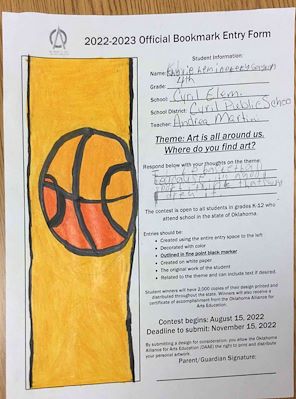 2022-2023 Official Bookmark Entry Form
Student Information:
Name:
Grade: 4th
School: Cyril Elem.
School District: Cyril Public School
Teacher: Andrea Martin
Theme: Art is all around us.
Where do you find art?
Respond below with your thoughts on the theme:
The contest is open to all students in grades K-12 who
attend school in the state of Oklahoma.
Entries should be:
• Created using the entire entry space to the left
• Decorated with color
• Outlined in fine point black marker
• Created on white paper
• The original work of the student
• Related to the theme and can include text if desired.
Student winners will have 2,000 copies of their design printed and
distributed throughout the state. Winners will also receive a
certificate of accomplishment from the Oklahoma Alliance for
Arts Education.
Contest begins: August 15, 2022
Deadline to submit: November 15, 2022
By submitting a design for consideration, you allow the Oklahoma
Alliance for Arts Education (OAAE) the right to print and distribute
your personal artwork.
Parent/Guardian Signature: